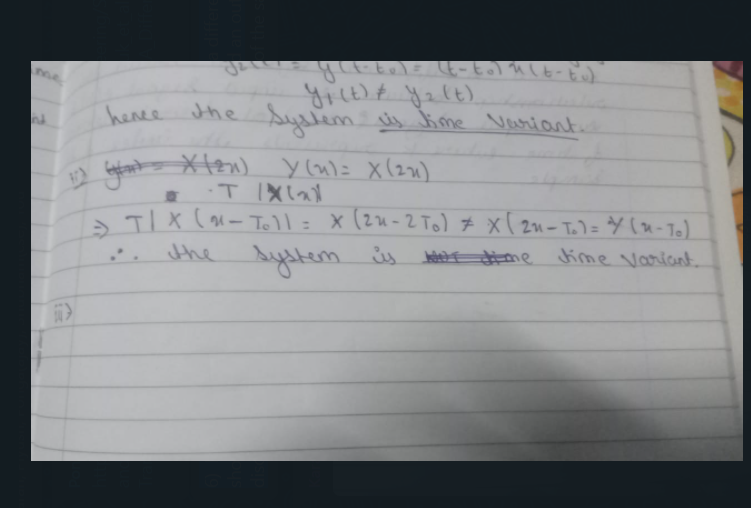 y₂(t) = y(t-t₀) = (t-t₀) x(t-t₀)
y₁(t) ≠ y₂(t)
hence the system is time variant.
ii) y(n) = X(2n) Y(n) = X(2n)
T |X(n)|
⇒ T| X (n-T₀)| = X (2n-2T₀) ≠ X( 2n-T₀) = Y (n-T₀)
∴ the system is not time time variant.
iii)